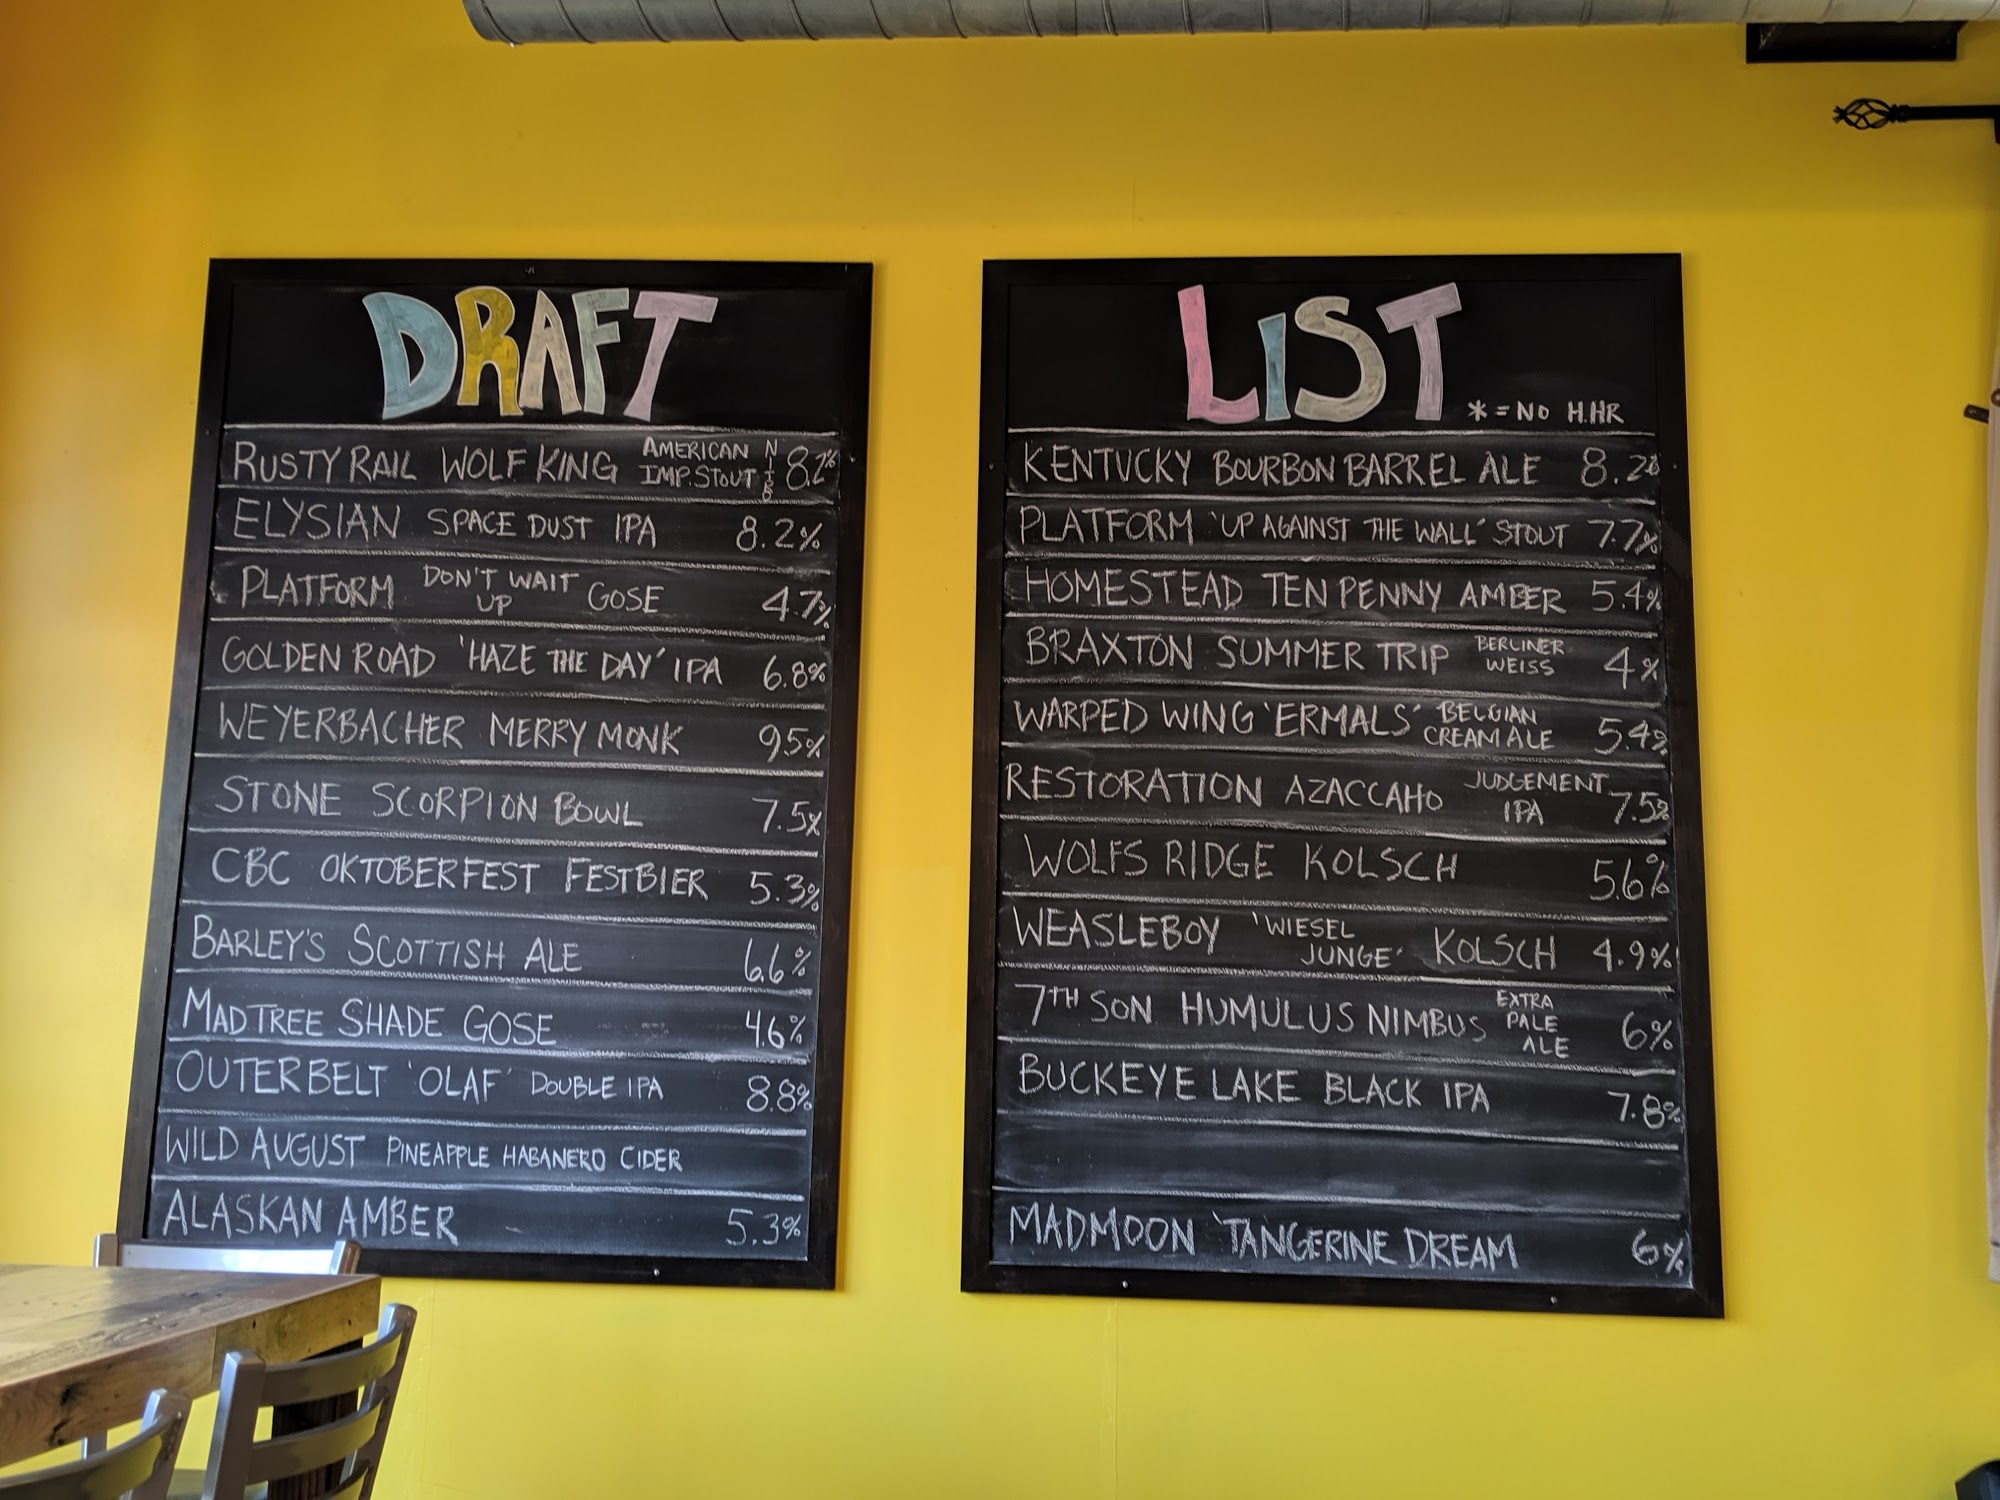 DRAFT
RUSTY RAIL WOLF KING AMERICAN IMP. STOUT NITRO 8.2%
ELYSIAN SPACE DUST IPA 8.2%
PLATFORM DON'T WAIT UP GOSE 4.7%
GOLDEN ROAD 'HAZE THE DAY' IPA 6.8%
WEYERBACHER MERRY MONK 9.5%
STONE SCORPION BOWL 7.5%
CBC OKTOBERFEST FESTBIER 5.3%
BARLEY'S SCOTTISH ALE 6.6%
MADTREE SHADE GOSE 4.6%
OUTERBELT 'OLAF' DOUBLE IPA 8.8%
WILD AUGUST PINEAPPLE HABANERO CIDER
ALASKAN AMBER 5.3%
LIST
* = NO H.HR
KENTUCKY BOURBON BARREL ALE 8.2%
PLATFORM 'UP AGAINST THE WALL' STOUT 7.7%
HOMESTEAD TEN PENNY AMBER 5.4%
BRAXTON SUMMER TRIP BERLINER WEISS 4%
WARPED WING 'ERMALS' BELGIAN CREAM ALE 5.4%
RESTORATION AZACCAHO JUDGEMENT IPA 7.5%
WOLFS RIDGE KOLSCH 5.6%
WEASLEBOY 'WIESEL JUNGE' KOLSCH 4.9%
7TH SON HUMULUS NIMBUS EXTRA PALE ALE 6%
BUCKEYE LAKE BLACK IPA 7.8%
MADMOON 'TANGERINE DREAM 6%